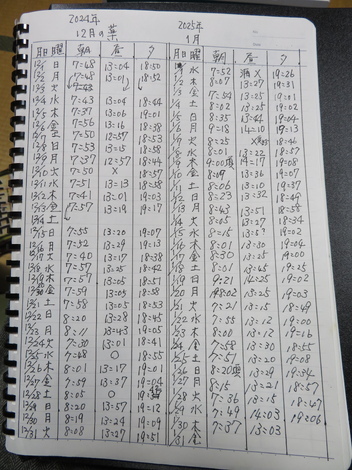 2024年
12月の薬
月日 曜 朝 昼 夕
12/1 日 7=48 13=04 18:50
12/2 月 7=48 13=01 18=52
12/3 火
12/4 水 7=43 13=04 18=44
12/5 木 7=37 13=06 19=01
12/6 金 7=56 13=16 18=38
12/7 土 7=50 12=57 18=53
12/8 日 7=55 13=09 18=58
12/9 月 7=37 12=57 18=44
12/10 火 7=50 × 18=57
12/11 水 7=51 13=13 18=58
12/12 木 7=41 13=01 19=03
12/13 金 7=57 13=19 19=17
12/14 土
12/15 日 7=55 13=20 19=07
12/16 月 7=52 13=29 19=13
12/17 火 7=40 13=17 18=38
12/18 水 7=57 13=25 18=42
12/19 木 7=57 13=05 18=54
12/20 金 13=05 18=58
12/21 土 7=58 13=05 18=53
12/22 日 8=20 13=28 18=45
12/23 月 8=11 13=43 19=05
12/24 火 7=30 13=01 18=44
12/25 水 7=48 ○ 18=55
12/26 木 8=01 13=17 19=01
12/27 金 7=59 13=37 19=04
12/28 土 8=05 ○
12/29 日 8=20 13=57 19=12
12/30 月 8=19 13=24 19=01
12/31 火 8=08 13=27 19=51
2025年
1月
月日 曜 朝 昼 夕
1/1 水 7=52 × 19=26
1/2 木 8=07 13=27 19=31
1/3 金 7=54 13=25
1/4 土 8=02 13=25 19=02
1/5 日 8=35 13=44 19=04
1/6 月 9=18 14=10 19=13
1/7 火 8=25 18=46
1/8 水 8=01 13=22 18=57
1/9 木 14=17 19=08
1/10 金 13=36 19=07
1/11 土 8=06 13=10 19=37
1/12 日 8=23 13=32 18=49
1/13 月 8=43 18=55
1/14 火 8=21 13=51 19=34
1/15 水 8=15
1/16 木 8=01 13=30 19=04
1/17 金 8=30 13=25 19=00
1/18 土 8=01 13=45 19=25
1/19 日 9=21 14=25 19=02
1/20 月 13=25 19=03
1/21 火 7=21 13=15 18=49
1/22 水 7=55 13=12 19=00
1/23 木 8=00 13=12 19=16
1/24 金 7=58 13=30 18=55
1/25 土 7=51 13=20 19=08
1/26 日 13=29 19=34
1/27 月 8=15 13=21 18=57
1/28 火 7=36 13=15
1/29 水 7=49 14=03 19=06
1/30 木 7=37 13=03
1/31 金